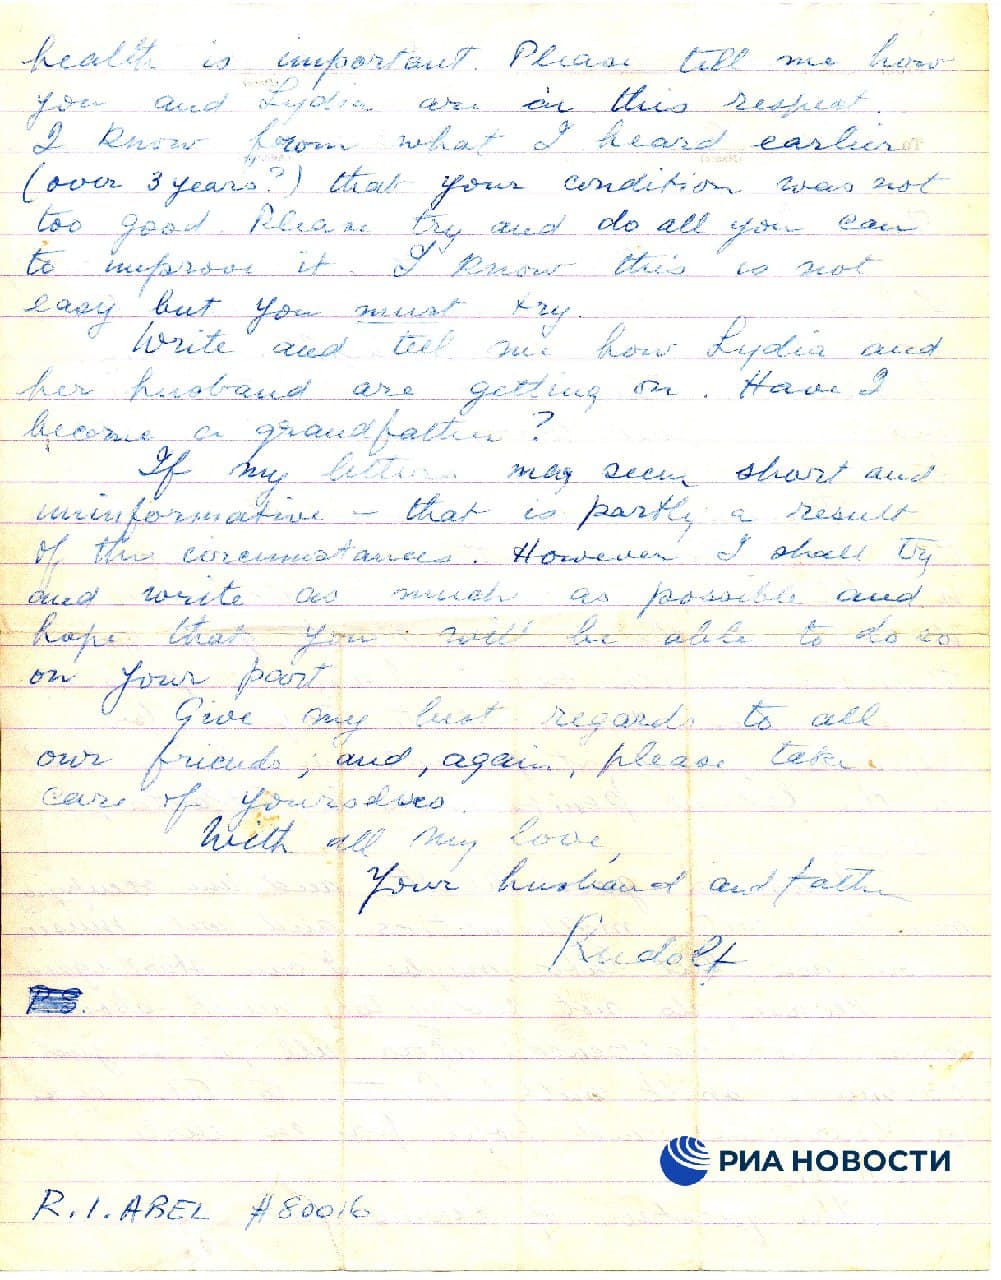 health is important. Please tell me how
you and Lydia are in this respect.
I know from what I heard earlier
(over 3 years?) that your condition was not
too good. Please try and do all you can
to improve it. I know this is not
easy but you must try.
Write and tell me how Lydia and
her husband are getting on. Have I
become a grandfather?
If my letters may seem short and
uninformative - that is partly a result
of the circumstances. However I shall try
and write as much as possible and
hope that you will be able to do so
on your part
Give my best regards to all
our friends, and, again, please take
care of yourselves.
With all my love,
Your husband and father
Rudolf
PS.
РИА НОВОСТИ
R.I. ABEL #80016